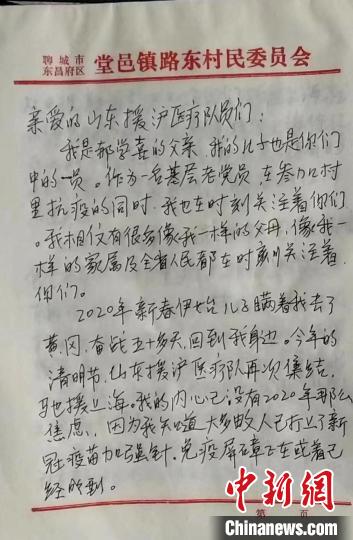 聊城市
东昌府区
堂邑镇路东村民委员会
亲爱的山东援沪医疗队员们：
我是郝学喜的父亲，我的儿子也是你们
中的一员。作为一名基层老党员，在参加村
里抗疫的同时，我也在时刻关注着你们
。我相信有很多像我一样的父母，像我一
样的家属及全省人民都在时刻关注着
你们。
2020年新春伊始，儿子瞒着我去了
黄冈，奋战五十多天，回到我身边。今年的
清明节，山东援沪医疗队再次集结，
驰援上海。我的内心已没有2020年那么
焦虑，因为我知道大多数人已打上了新
冠疫苗加强针，免疫屏障正在或者已
经
第 页
中新网
Chinanews.com